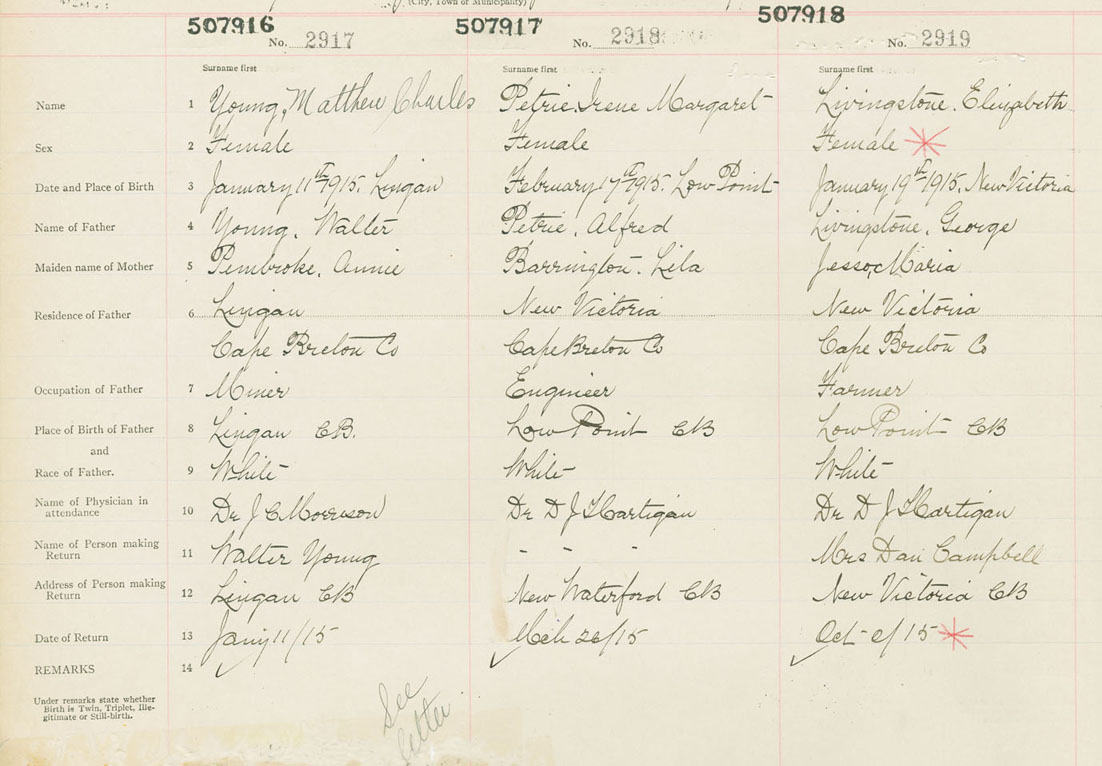 (City, Town or Municipality)
507916 507917 507918
No. 2917 No. 2918 No. 2919
Surname first Surname first Surname first
Name 1 Young, Matthew Charles Petrie, Irene Margaret Livingstone, Elizabeth
Sex 2 Female Female Female
Date and Place of Birth 3 January 11th 1915. Lingan February 17th 1915. Low Point January 19th 1915. New Victoria
Name of Father 4 Young, Walter Petrie, Alfred Livingstone, George
Maiden name of Mother 5 Pembroke, Annie Barrington, Lila Jesso, Maria
Residence of Father 6 Lingan New Victoria New Victoria
Cape Breton Co Cape Breton Co Cape Breton Co
Occupation of Father 7 Miner Engineer Farmer
Place of Birth of Father 8 Lingan CB. Low Point CB Low Point CB
and
Race of Father. 9 White White White
Name of Physician in
attendance 10 Dr J C Morrison Dr D J Hartigan Dr D J Hartigan
Name of Person making
Return 11 Walter Young - - - Mrs Dan Campbell
Address of Person making
Return 12 Lingan CB New Waterford CB New Victoria CB
Date of Return 13 Jany 11/15 Mch 26/15 Oct /15
REMARKS 14
Under remarks state whether
Birth is Twin, Triplet, Ille-
gitimate or Still-birth.
See
letter